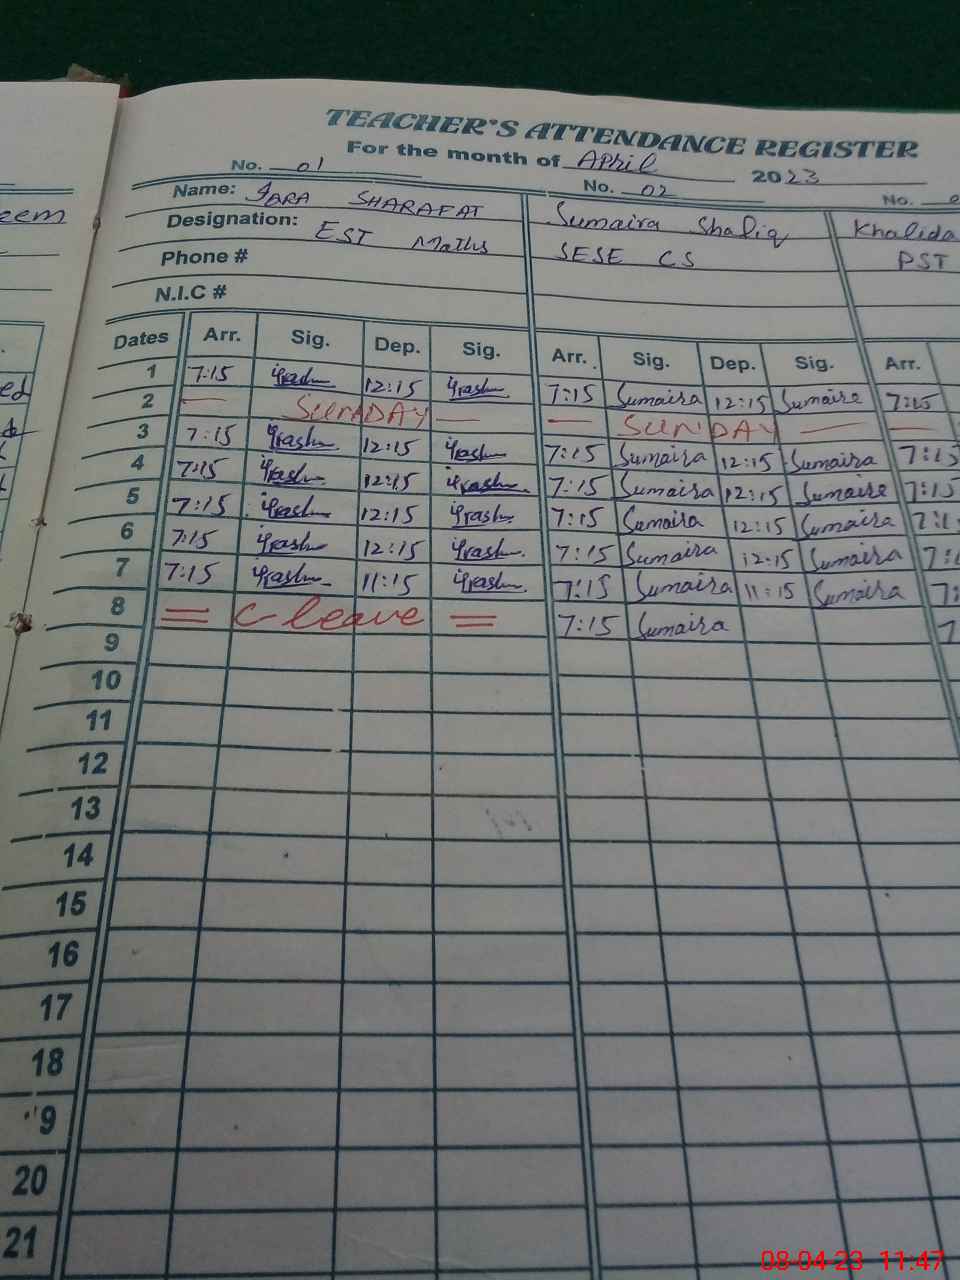 TEACHER'S ATTENDANCE REGISTER
For the month of April 2023
No. 01 No. 02 No.
Name: IARA SHARAFAT Sumaira Shafiq Khalida
Designation: EST Maths SESE CS PST
Phone #
N.I.C #
Dates Arr. Sig. Dep. Sig. Arr. Sig. Dep. Sig. Arr.
1 7:15 12:15 7:15 Sumaira 12:15 Sumaira 7:15
2 — SUNDAY — — SUNDAY — —
3 7:15 12:15 7:15 Sumaira 12:15 Sumaira 7:15
4 7:15 12:15 7:15 Sumaira 12:15 Sumaira 7:15
5 7:15 12:15 7:15 Sumaira 12:15 Sumaira
6 7:15 12:15 7:15 Sumaira 12:15 Sumaira
7 7:15 11:15 7:15 Sumaira 11:15 Sumaira
8 = C-leave = 7:15 Sumaira
9
10
11
12
13
14
15
16
17
18
9
20
21
08-04-23 11:47